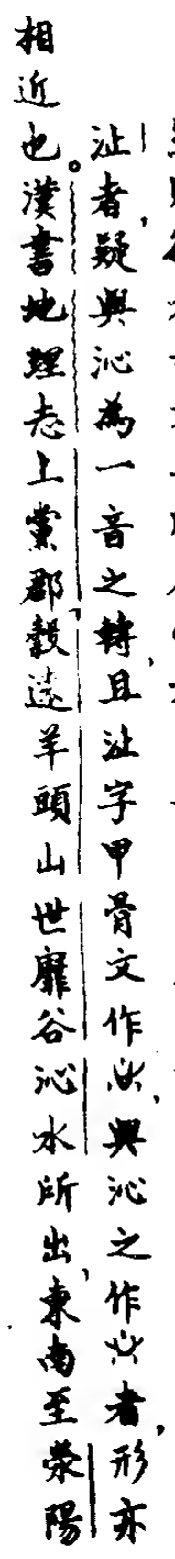 沚者，疑與沁為一音之轉，且沚字甲骨文作，與沁之作者，形亦
相近也。漢書地理志上黨郡，穀遠羊頭山世靡谷沁水所出，東南至滎陽